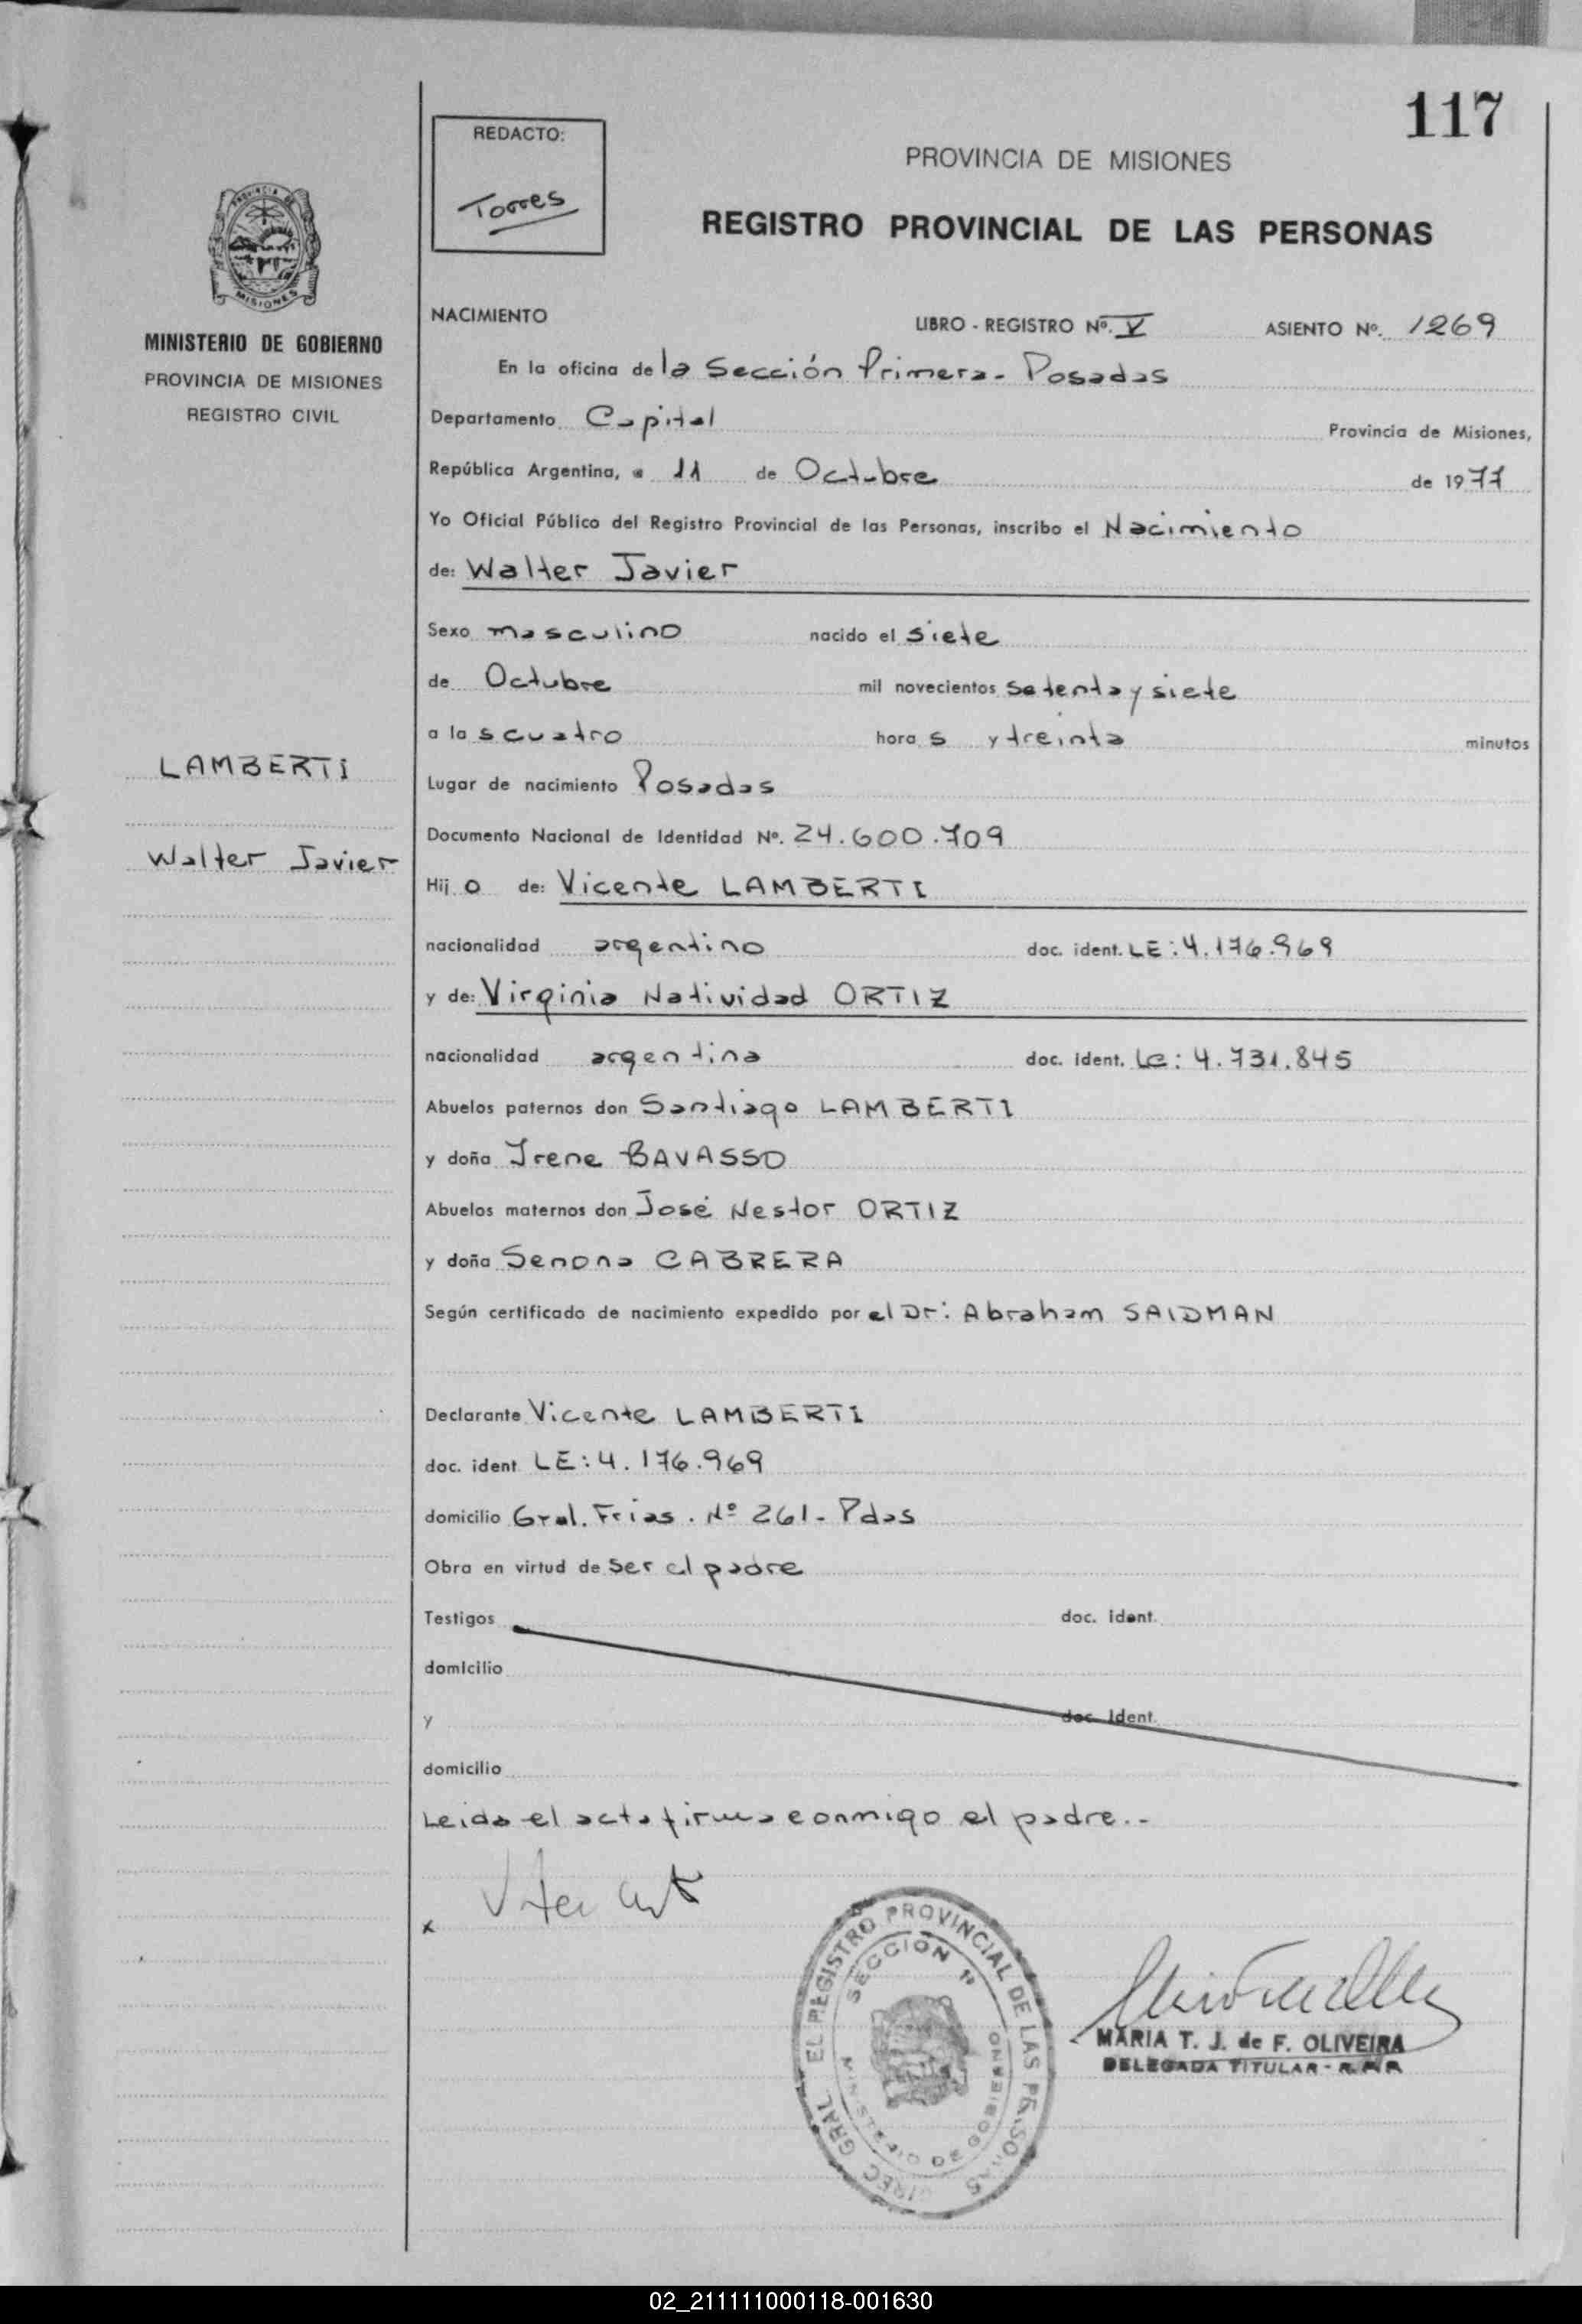 117
REDACTO:
Torres
PROVINCIA DE MISIONES
REGISTRO PROVINCIAL DE LAS PERSONAS
PROVINCIA DE
MISIONES
MINISTERIO DE GOBIERNO
PROVINCIA DE MISIONES
REGISTRO CIVIL
LAMBERTI
Walter Javier
NACIMIENTO LIBRO - REGISTRO Nº. V ASIENTO Nº. 1269
En la oficina de la Sección Primera - Posadas
Departamento Capital Provincia de Misiones,
República Argentina, a 11 de Octubre de 1977
Yo Oficial Público del Registro Provincial de las Personas, inscribo el Nacimiento
de: Walter Javier
Sexo masculino nacido el siete
de Octubre mil novecientos setenta y siete
a las cuatro horas y treinta minutos
Lugar de nacimiento Posadas
Documento Nacional de Identidad Nº. 24.600.709
Hijo de: Vicente LAMBERTI
nacionalidad argentino doc. ident. LE: 4.176.969
y de: Virginia Natividad ORTIZ
nacionalidad argentina doc. ident. Lc: 4.731.845
Abuelos paternos don Santiago LAMBERTI
y doña Irene BAVASSO
Abuelos maternos don José Nestor ORTIZ
y doña Senona CABRERA
Según certificado de nacimiento expedido por el Dr: Abraham SAIDMAN
Declarante Vicente LAMBERTI
doc. ident LE: 4.176.969
domicilio Gral. Frias. Nº 261 - Pdas
Obra en virtud de ser el padre
Testigos doc. ident.
domicilio
y doc. ident.
domicilio
Leida el acta firma conmigo el padre.-
x
DIREC GRAL EL REGISTRO PROVINCIAL DE LAS PERSONAS
SECCION 1ª
MINISTERIO DE GOBIERNO
MARIA T. J. de F. OLIVEIRA
DELEGADA TITULAR - R.P.P.
02_211111000118-001630